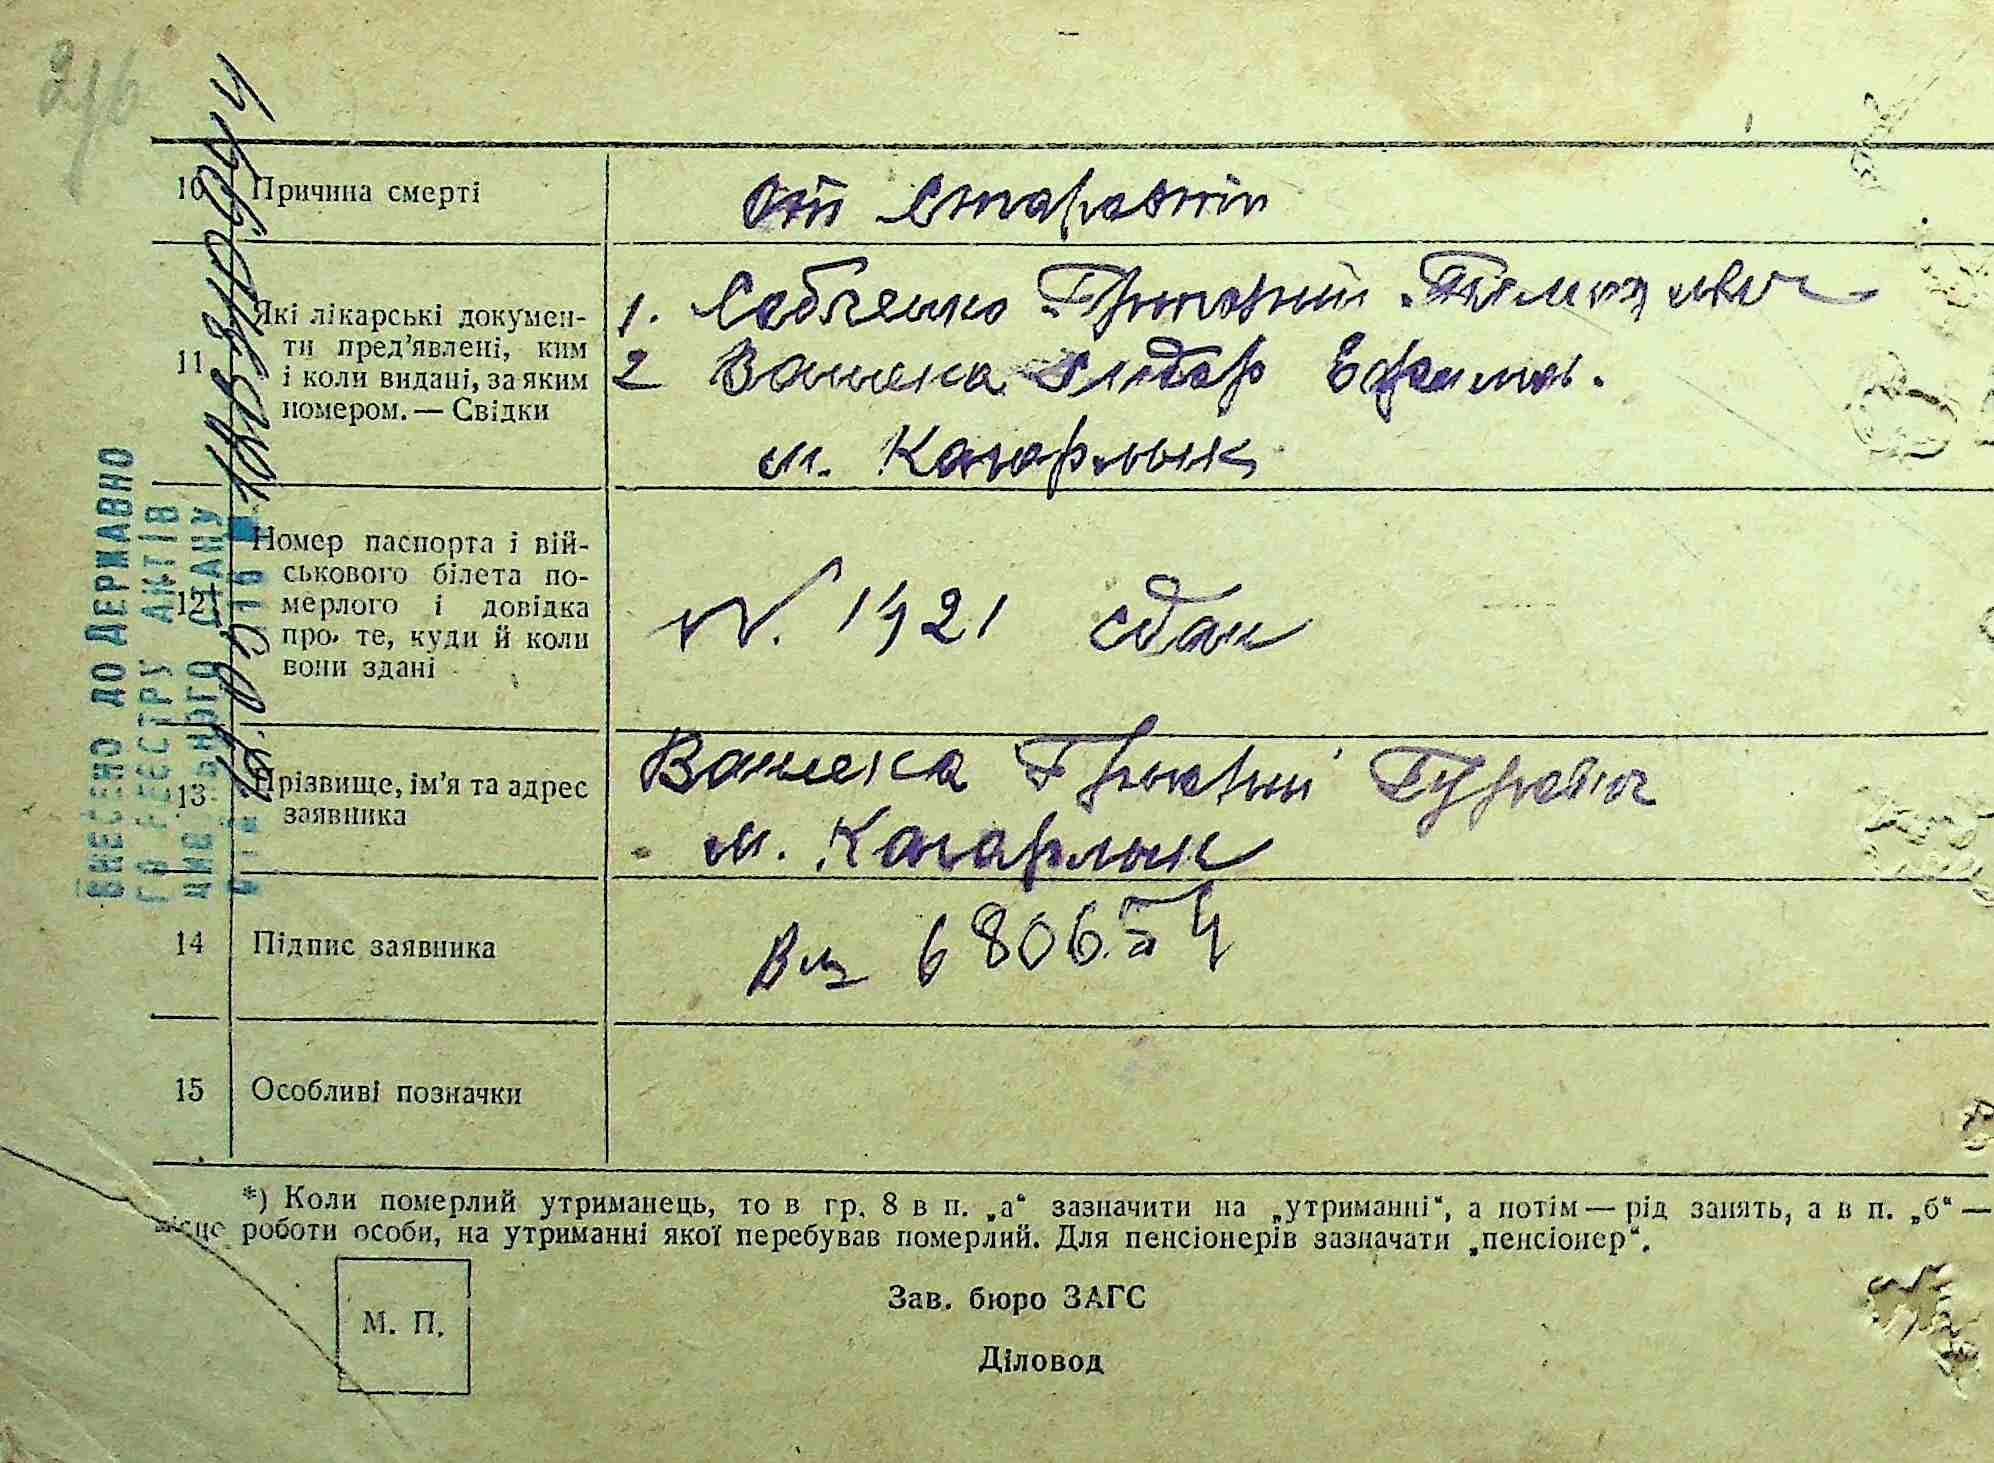 216
10 Причина смерті
От старости
11 Які лікарські докумен-
ти пред’явлені, ким
і коли видані, за яким
номером. — Свідки
1. Собченко Григорий
2 Вашека Сидор Ефимов.
м. Кагарлык
12 Номер паспорта і вій-
ськового білета по-
мерлого і довідка
про те, куди й коли
вони здані
N. 1421 сдан
13 Прізвище, ім’я та адрес
заявника
Вашека Григорий Гурович
м. Кагарлык
14 Підпис заявника
680654
15 Особливі позначки
*) Коли померлий утриманець, то в гр. 8 в п. „а“ зазначити на „утриманні“, а потім — рід занять, а в п. „б“ —
місце роботи особи, на утриманні якої перебував померлий. Для пенсіонерів зазначати „пенсіонер“.
М. П.
Зав. бюро ЗАГС
Діловод
ВНЕСЕНО ДО ДЕРЖАВНО
ГО РЕЄСТРУ АКТІВ
ЦИВІЛЬНОГО СТАНУ